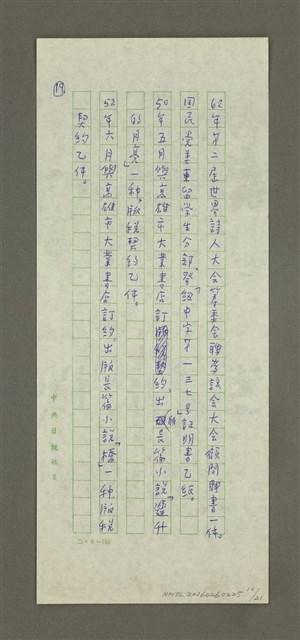 19
62年第二屆世界詩人大會籌委會聯學誼會大会顧問聘書一件。
國民党差東留学生分部,發紐中字第一三七号証明書乙紙。
50年五月與高雄市大業書店訂約,出版長篇小說,「
的月亮」一種,版稅契約乙件。
52年六月與高雄市大業書店訂約,出版長篇小說「橋」一種版稅
契約乙件。
中央日報
NMTL20160260225 19/21